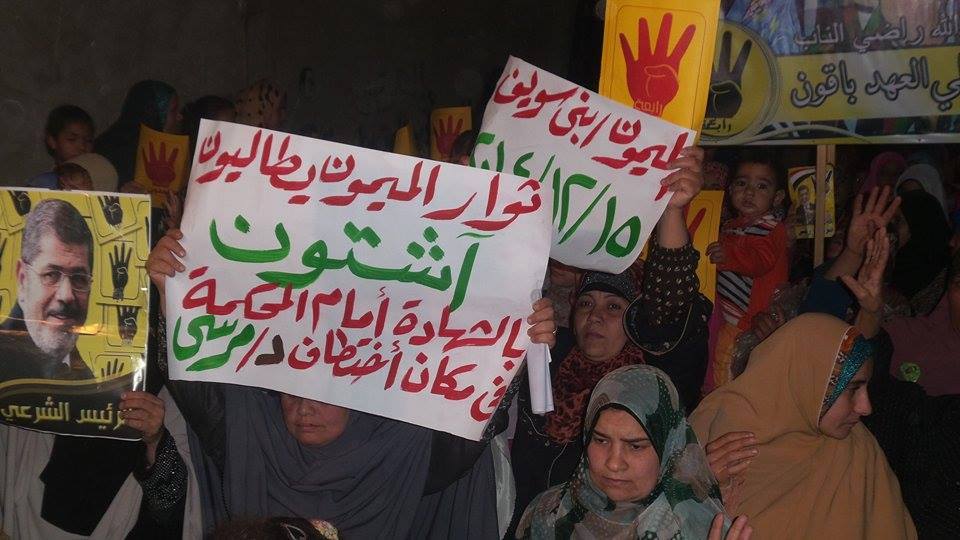 ثوار الميمون يطالبون
آشتون
بالشهادة أمام المحكمة
فى مكان أختطاف د/مرسى
الميمون/بنى سويف
١٥/١٢/
رابعة
الله راضي الناب
ي العهد باقون
الرئيس الشرعي